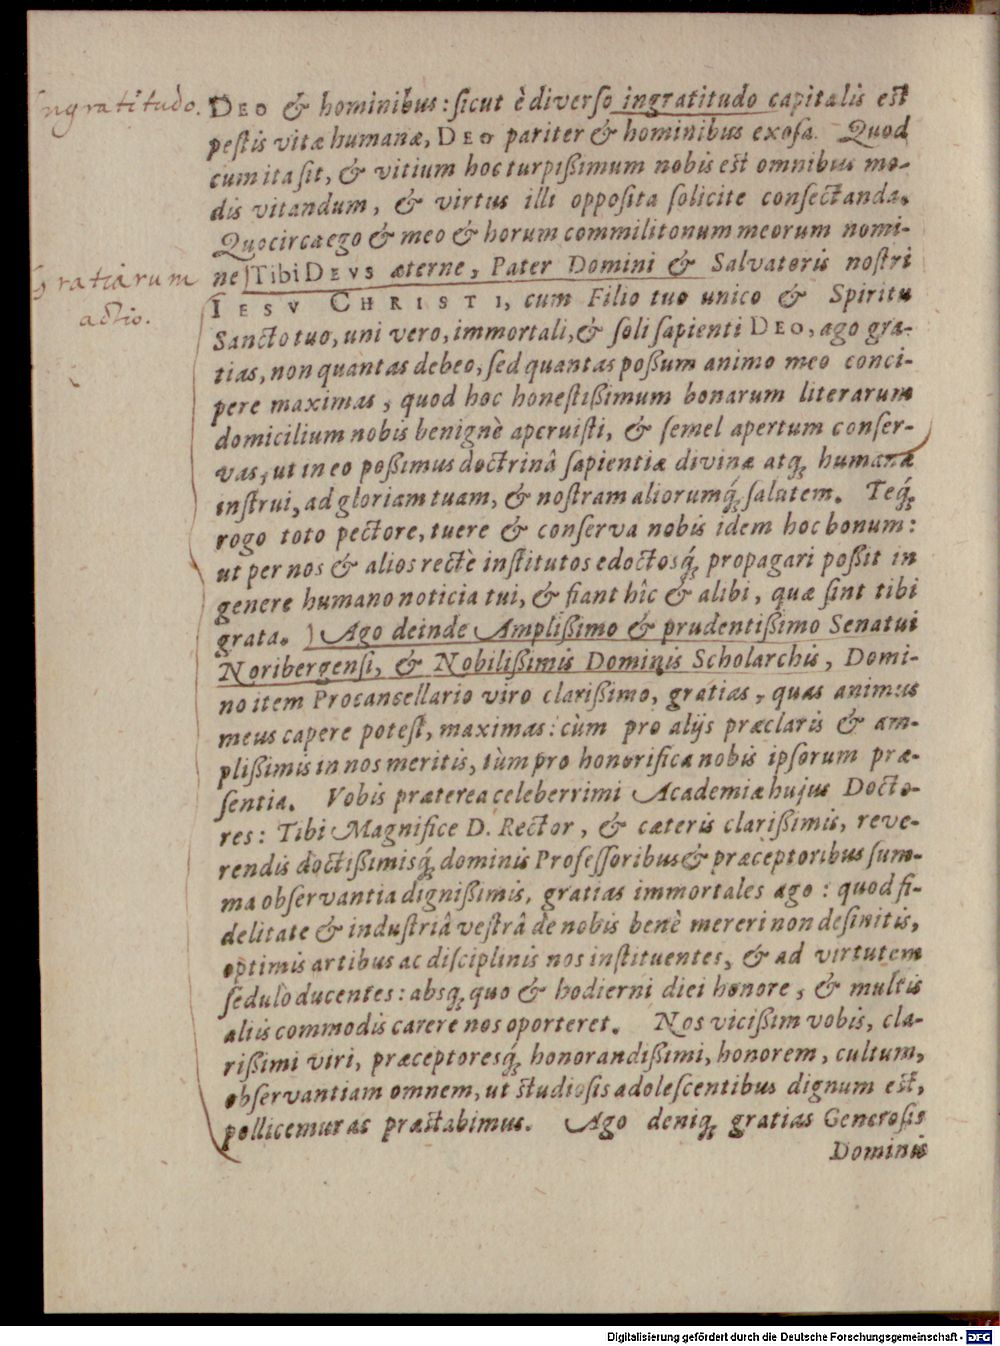 Ingratitudo.
DEO & hominibus: ſicut è diverſo ingratitudo capitalis eſt
peſtis vitæ humanæ, DEO pariter & hominibus exoſa. Quod
cum ita ſit, & vitium hoc turpißimum nobis eſt omnibus mo-
dis vitandum, & virtus illi oppoſita ſolicite conſectanda.
Quocirca ego & meo & horum commilitonum meorum nomi-
Gratiarum
actio.
ne Tibi DEVS æterne, Pater Domini & Salvatoris noſtri
IESV CHRISTI, cum Filio tuo unico & Spiritu
Sancto tuo, uni vero, immortali, & ſoli ſapienti DEO, ago gra-
tias, non quantas debeo, ſed quantas poßum animo meo conci-
pere maximas, quod hoc honeſtißimum bonarum literarum
domicilium nobis benignè aperuiſti, & ſemel apertum conſer-
vas, ut in eo poßimus doctrinâ ſapientiæ divinæ atq́ꝫ humanæ
inſtrui, ad gloriam tuam, & noſtram aliorumq́ꝫ ſalutem. Teq́ꝫ
rogo toto pectore, tuere & conſerva nobis idem hoc bonum:
ut per nos & alios rectè inſtitutos edoctosq́ꝫ propagari poßit in
genere humano noticia tui, & fiant hîc & alibi, quæ ſint tibi
grata. Ago deinde Amplißimo & prudentißimo Senatui
Noribergenſi, & Nobilißimis Dominis Scholarchis, Domi-
no item Procancellario viro clarißimo, gratias, quas animus
meus capere poteſt, maximas: cùm pro alijs præclaris & am-
plißimis in nos meritis, tùm pro honorifica nobis ipſorum præ-
ſentia. Vobis præterea celeberrimi Academiæ hujus Docto-
res: Tibi Magnifice D. Rector, & cæteris clarißimis, reve-
rendis doctißimisq́ꝫ dominis Profeſſoribus & præceptoribus ſum-
ma obſervantia dignißimis, gratias immortales ago: quod fi-
delitate & induſtriâ veſtrâ de nobis benè mereri non deſinitis,
optimis artibus ac diſciplinis nos inſtituentes, & ad virtutem
ſedulò ducentes: absqꝫ quo & hodierni diei honore, & multis
aliis commodis carere nos oporteret. Nos vicißim vobis, cla-
rißimi viri, præceptoresq́ꝫ honorandißimi, honorem, cultum,
obſervantiam omnem, ut ſtudioſis adoleſcentibus dignum eſt,
pollicemur ac præſtabimus. Ago deniqꝫ gratias Generoſis
Dominis
Digitalisierung gefördert durch die Deutsche Forschungsgemeinschaft - DFG